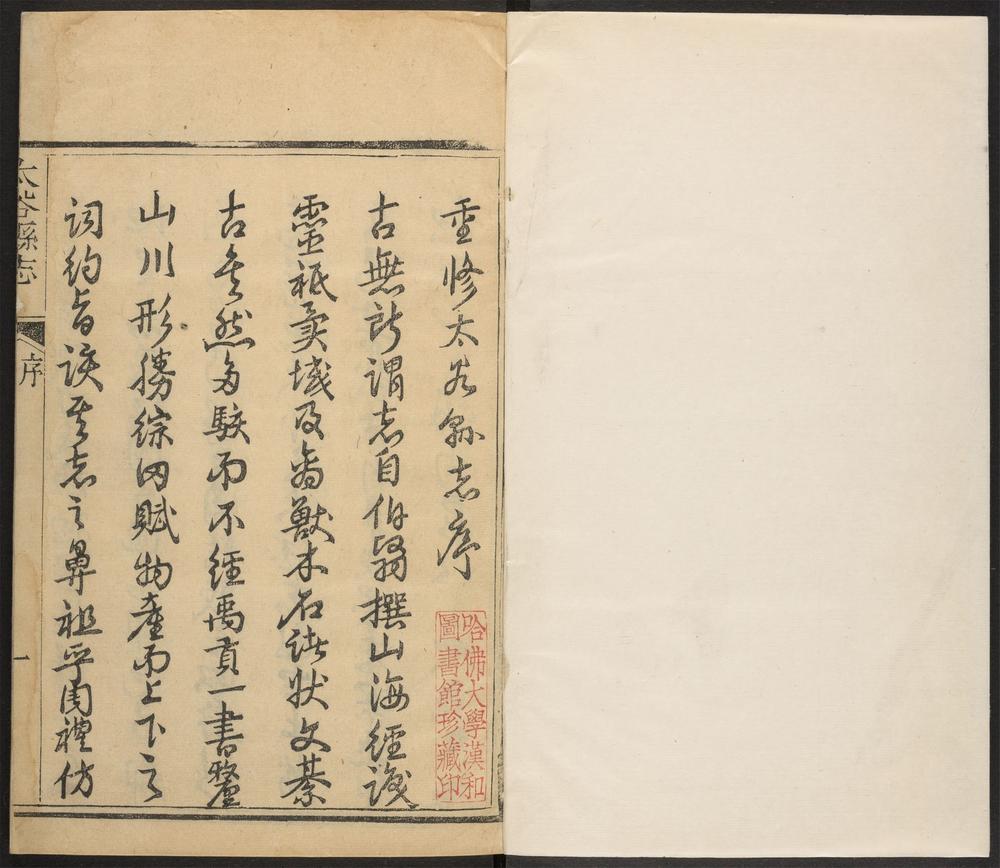 重修太谷縣志序
哈佛大學漢和
圖書館珍藏印
古無所謂志自伯翳撰山海經識
靈祇異域及禽獸木石諸狀文綦
古矣然多駁而不經禹貢一書釐
山川形勝綜田賦物產而上下之
詞約旨該其志之鼻祖乎周禮仿
太谷縣志
序
一